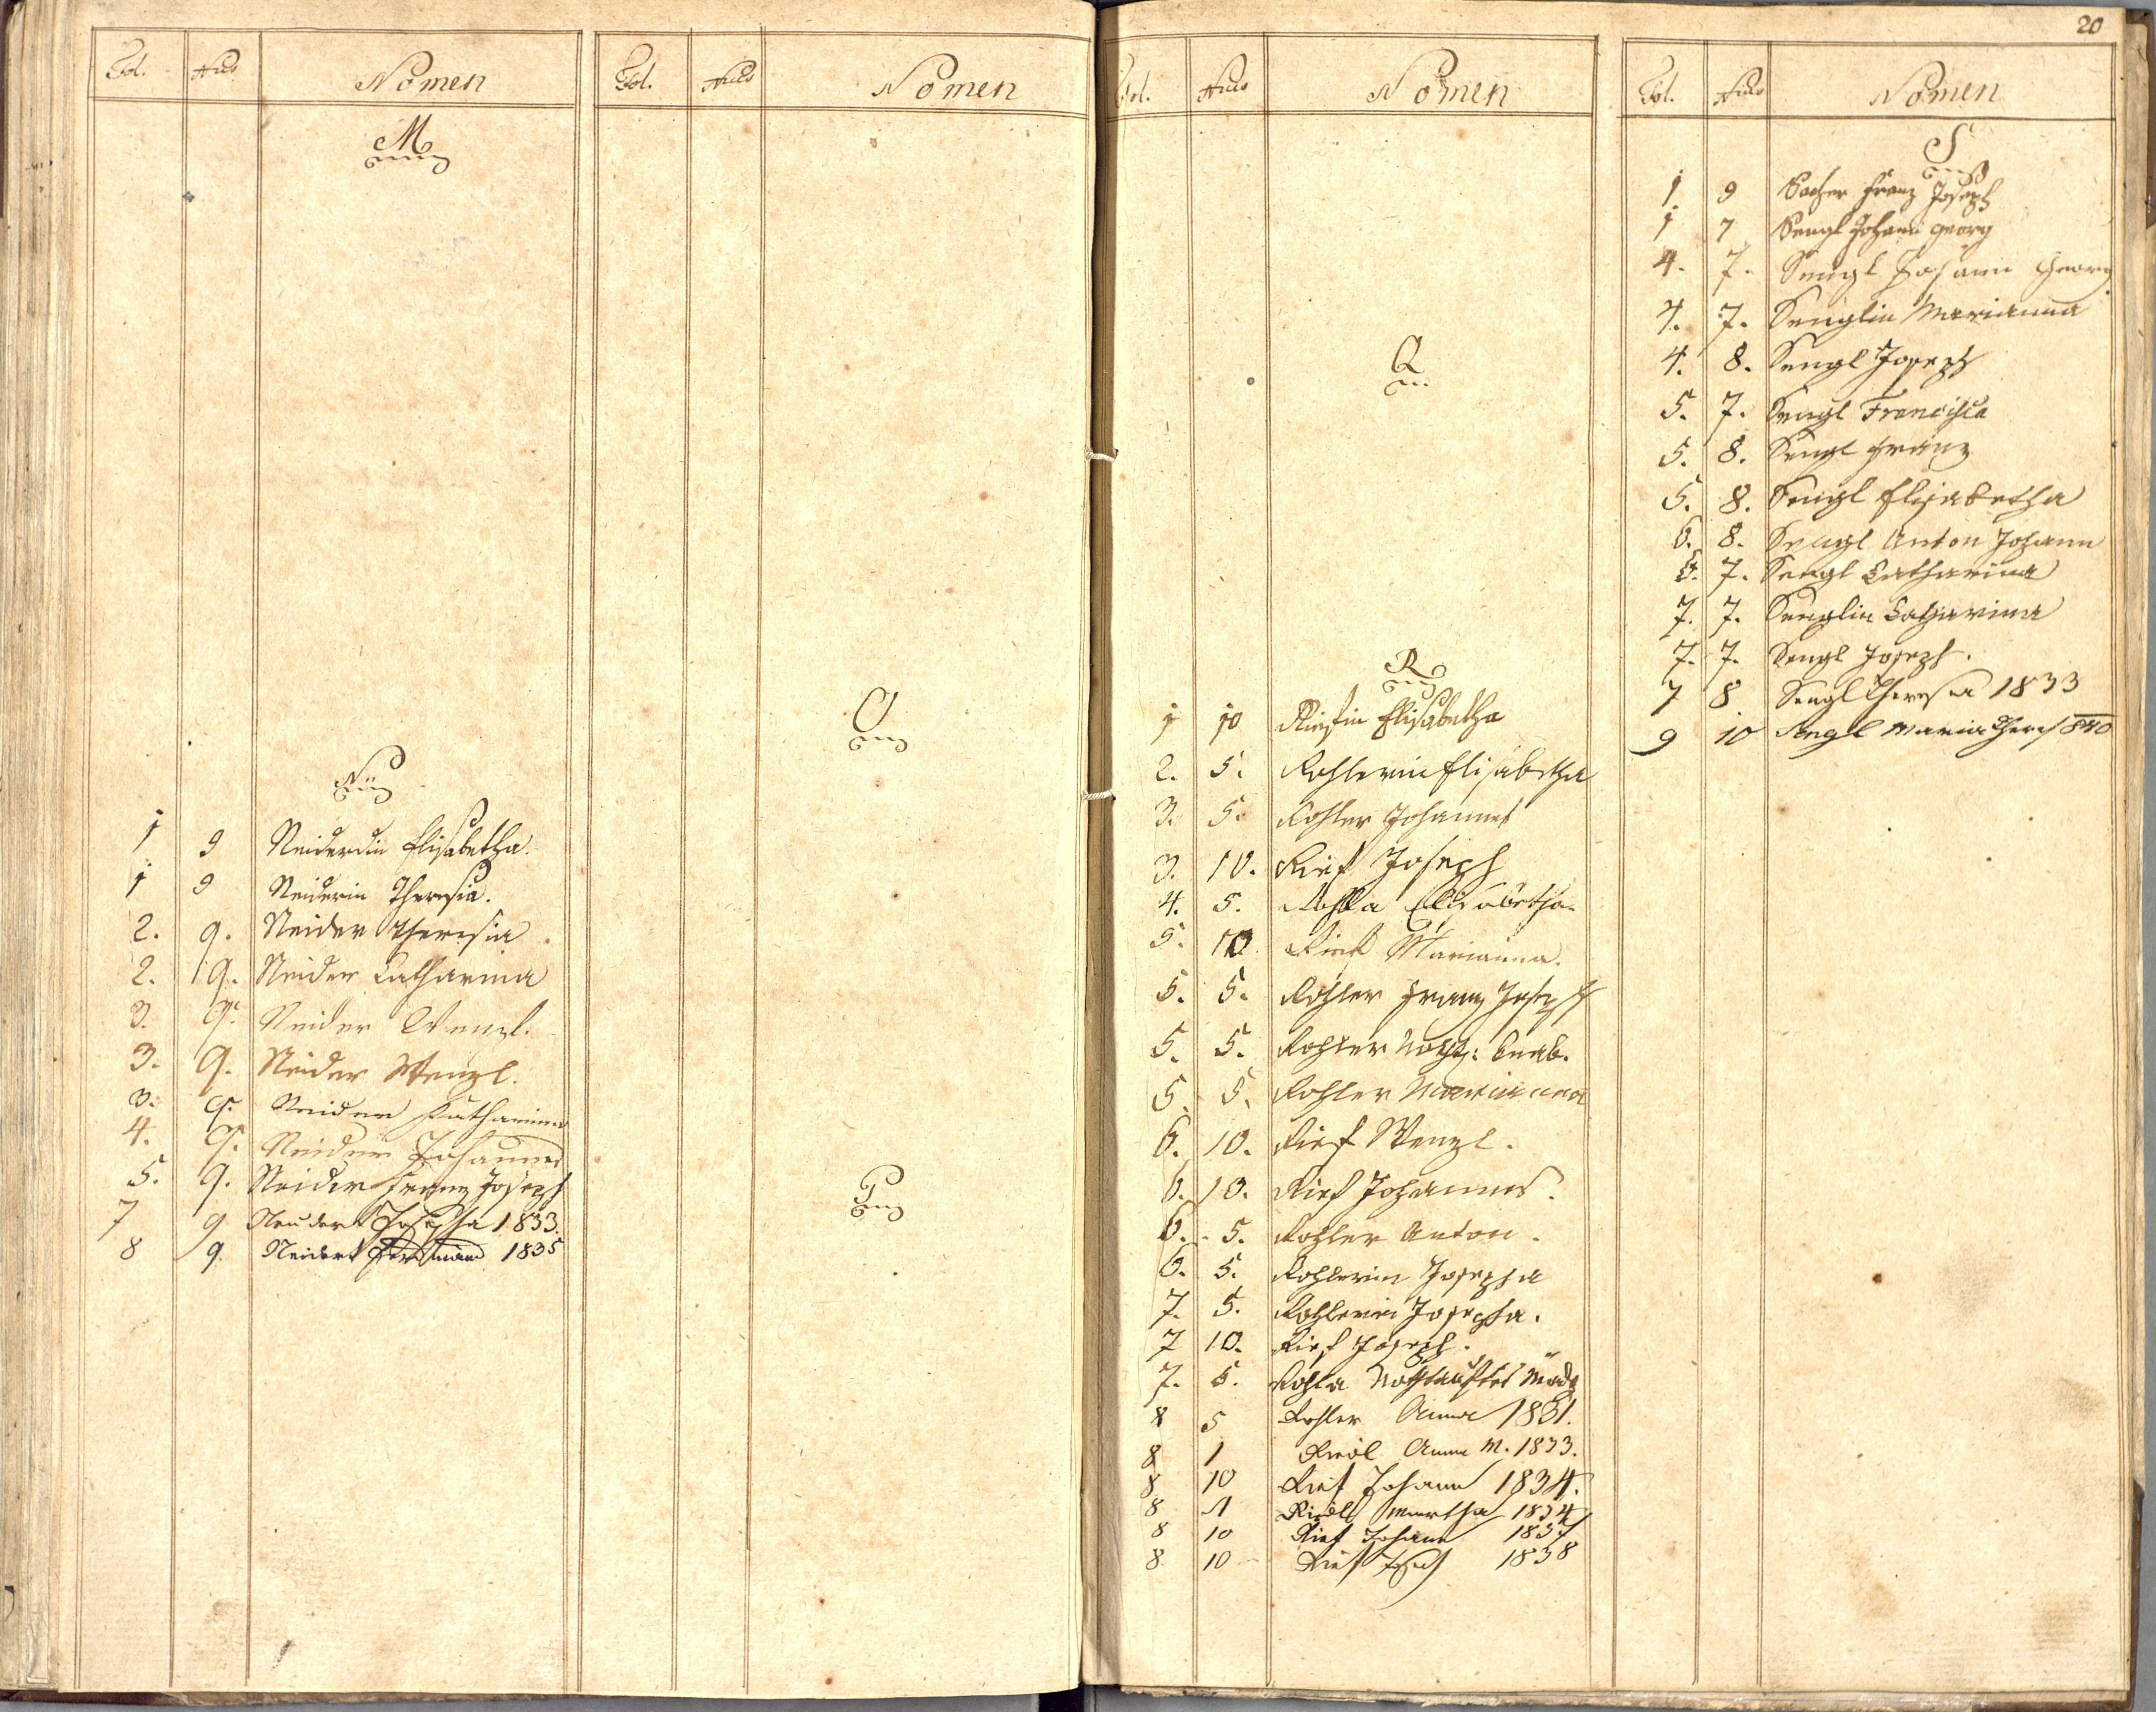 20
Fol. Nus Nomen
M
N
1 9 Neiderdin Elisabetha.
1 9 Neiderin Theresia.
2. 9. Neider Theresia
2. 9. Neider Catharina
3. 9. Neider Wenzl.
3. 9. Neider Wenzl.
3. 9. Neider Katharina
4. 9. Neider Johannes
5. 9. Neider Franz Joseph
7 9 Neudert Josepha 1833.
8 9. Neidert Ferdinand 1835
Fol. Nus Nomen
O
P
Fol. Nus Nomen
Q
R
1 10 Riesin Elisabetha
2. 5. Rohlerin Elisabetha
3. 5. Rohler Johannes
3. 10. Rief Joseph
4. 5. Rohla Elisabetha
5. 10 Rief Marianna.
5. 5. Rohler Franz Joseph
5. 5. Rohler Knab.
5. 5. Rohler Marianna
6. 10. Rief Wenzl.
6. 10. Rief Johannes.
6. 5. Rohler Anton.
6. 5. Rohlerin Josepha
7. 5. Rohlerin Josepha.
7 10. Rief Joseph.
7. 5. Rohla Nothtauftes Mädch
8 5 Rohler Anna 1831.
8 1 Riedl Anna M. 1833.
8 10 Rief Johann 1834.
8 1 Riedl Martha 1834
8 10 Rief Johann 1837
8 10 Rief Joseph 1838
Fol. Nus Nomen
S
1. 9 Franz Joseph
1 7 Sengl Johann Georg
4. 7. Sengl Johann Georg
4. 7. Senglin Marianna
4. 8. Sengl Joseph
5. 7. Sengl Francisca
5. 8. Sengl Franz
5. 8. Sengl Elisabetha
6. 8. Sengl Anton Johann
6. 7. Sengl Catharina
7. 7. Senglin Catharina
7. 7. Sengl Joseph.
7 8 Sengl Theresia 1833
9 10 Sengl Maria Theres 840